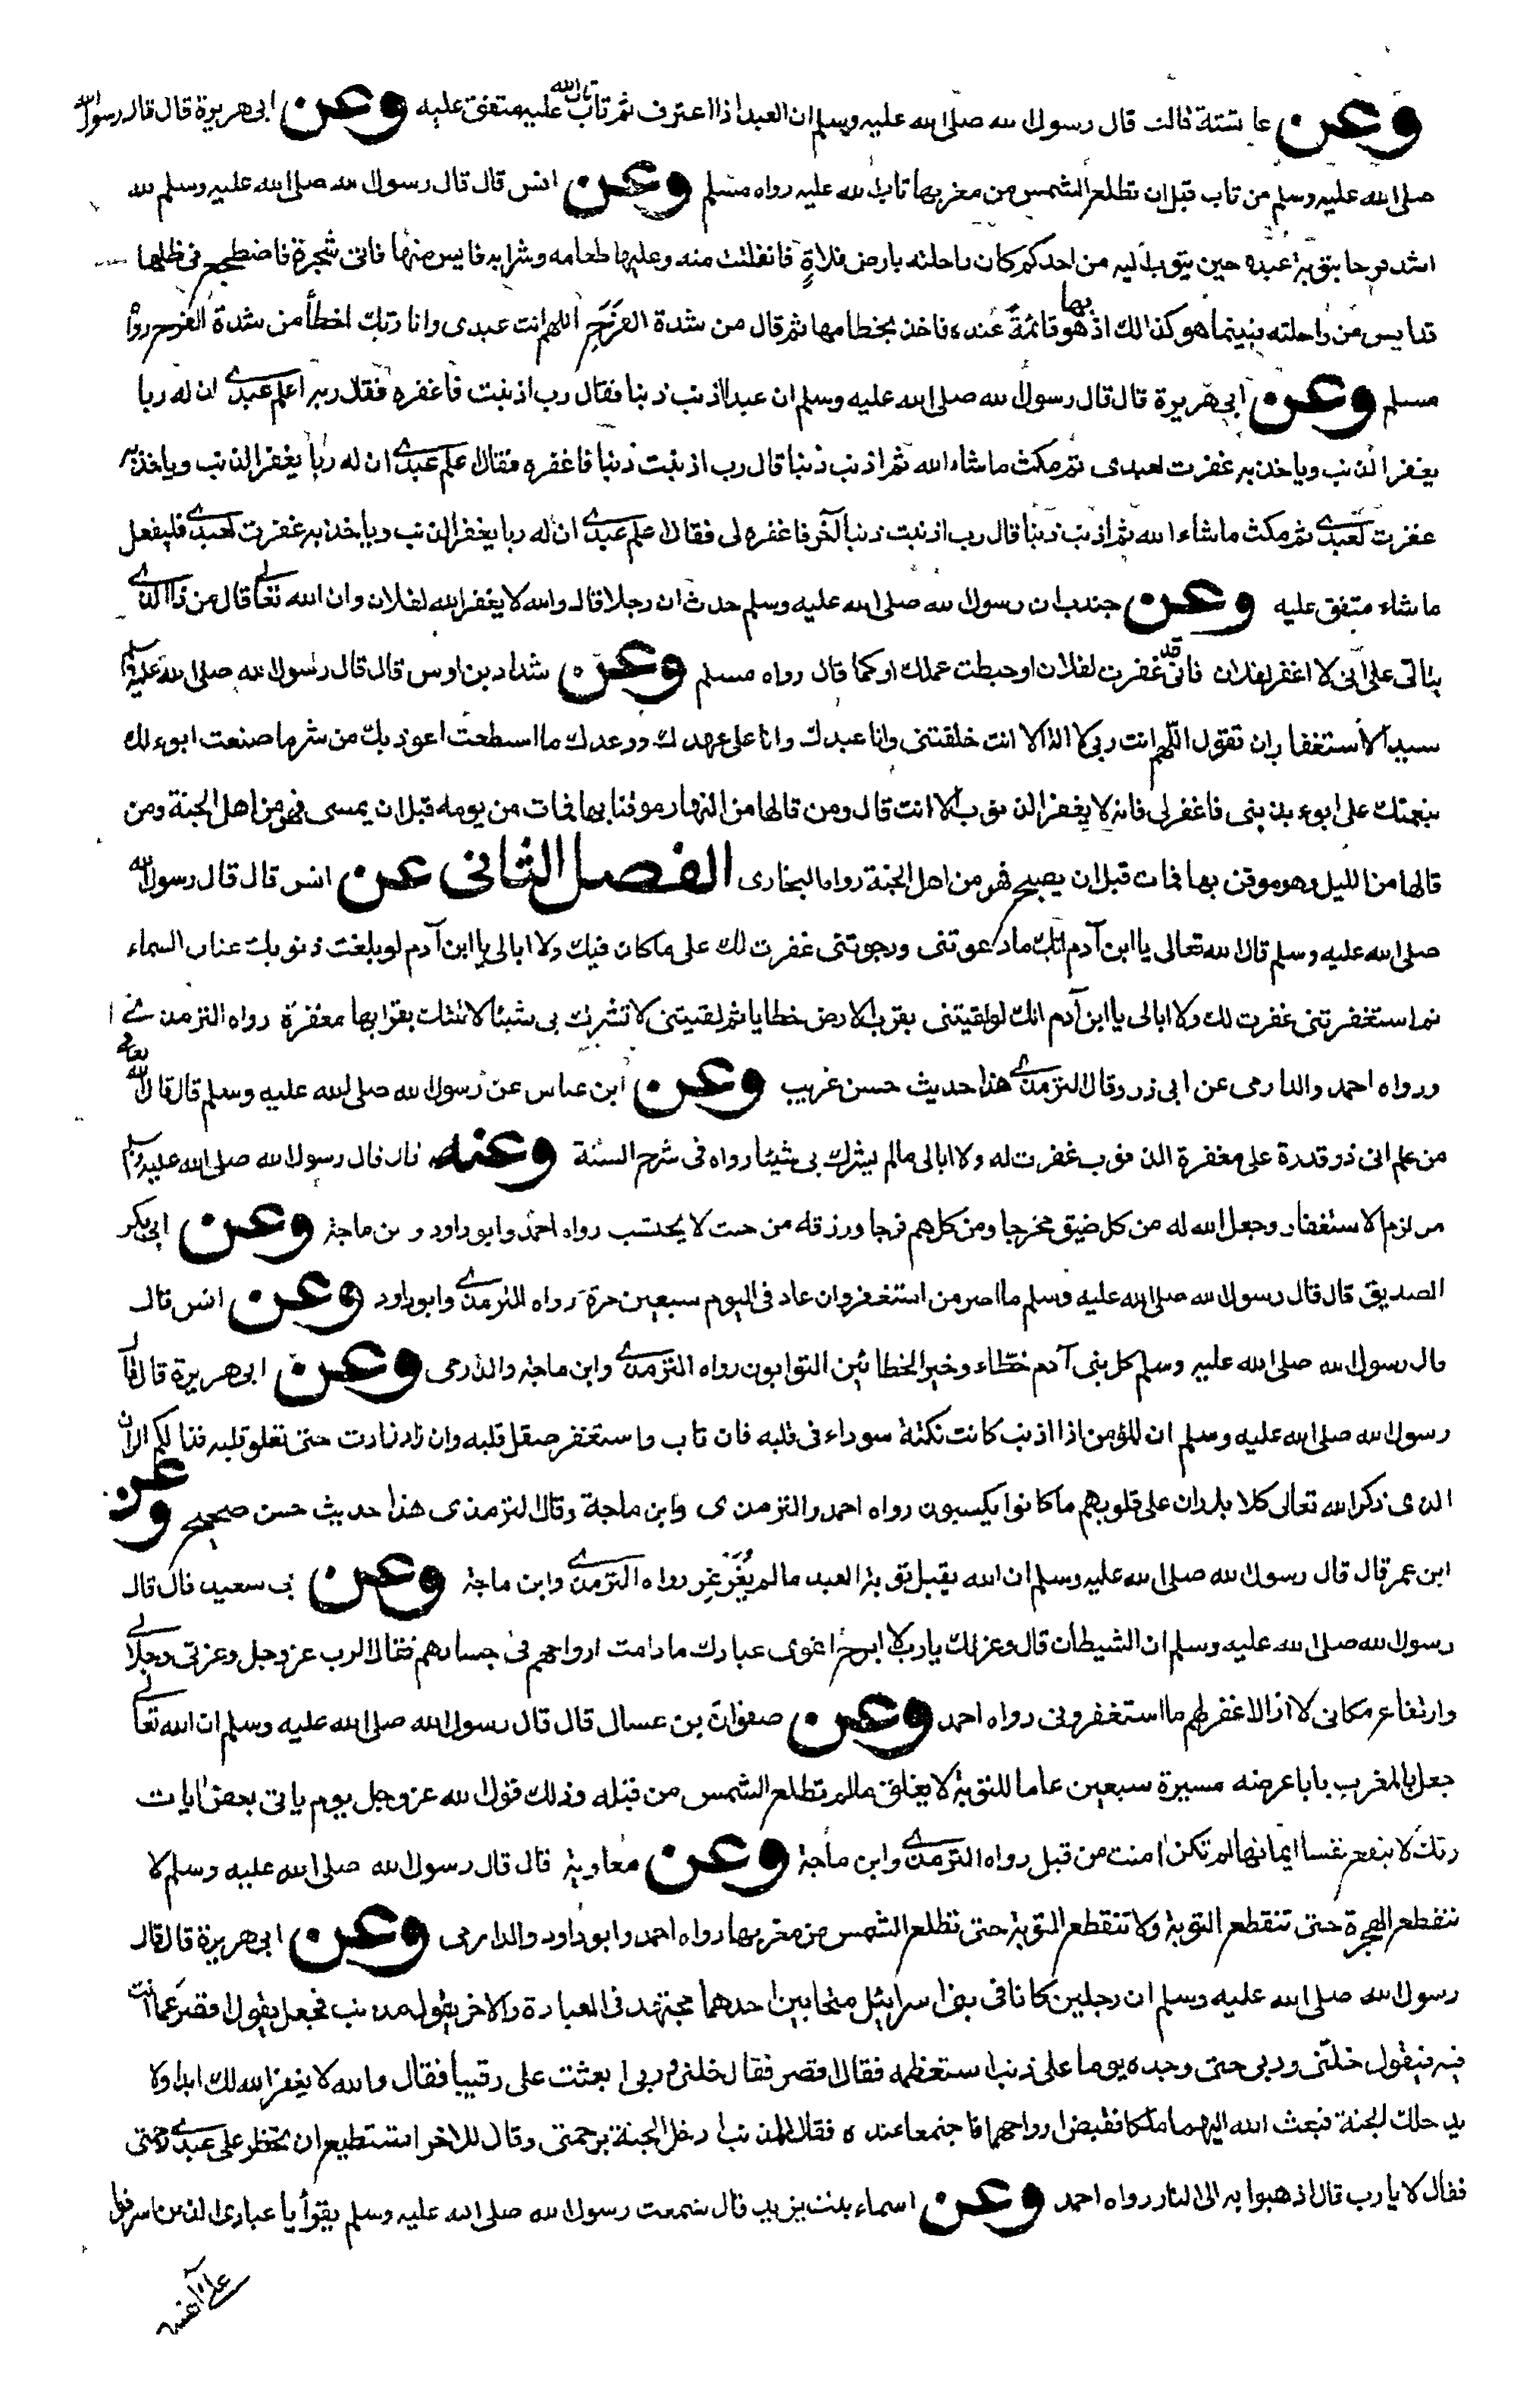 وعن عائشة قالت قال رسول الله صلى الله عليه وسلم ان العبد اذا اعترف ثم تاب تاب الله عليه متفق عليه وعن ابى هريرة قال قال رسول الله
صلى الله عليه وسلم من تاب قبل ان تطلع الشمس من مغربها تاب الله عليه رواه مسلم وعن انس قال قال رسول الله صلى الله عليه وسلم لله
اشد فرحا بتوبة عبده حين يتوب اليه من احدكم كان راحلته بارض فلاةٍ فانفلتت منه وعليها طعامه وشرابه فايس منها فاتى شجرة فاضطجع فى ظلها
قد ايس من راحلته فبينما هو كذالك اذ هو بها قائمةً عنده فاخذ بخطامها ثم قال من شدة الفَرَحِ اللهم انت عبدى وانا ربك اخطأ من شدة الفرح رواه
مسلم وعن ابى هريرة قال قال رسول الله صلى الله عليه وسلم ان عبدا اذنب ذنبا فقال رب اذنبت فاغفره فقال ربه اعلم عبدى ان له ربا
يغفر الذنب وياخذ به غفرت لعبدى ثم مكث ماشاء الله ثم اذنب ذنبا قال رب اذنبت ذنبا فاغفره فقال اعلم عبدى ان له ربا يغفر الذنب وياخذ به
غفرت لعبدى ثم مكث ماشاء الله ثم اذنب ذنبا قال رب اذنبت ذنبا آخر فاغفره لى فقال اعلم عبدى ان له ربا يغفر الذنب وياخذ به غفرت لعبدى فليفعل
ماشاء متفق عليه وعن جندب ان رسول الله صلى الله عليه وسلم حدث ان رجلا قال والله لا يغفر الله لفلان وان الله تعالى قال من ذا الذى
يتالى على انى لا اغفر لفلان فانى قد غفرت لفلان واحبطت عملك او كما قال رواه مسلم وعن شداد بن اوس قال قال رسول الله صلى الله عليه وسلم
سيد الاستغفار ان تقول اللهم انت ربى لا اله الا انت خلقتنى وانا عبدك وانا على عهدك ووعدك ما اسطعت اعوذ بك من شر ما صنعت ابوء لك
بنعمتك على ابوء بذنبى فاغفر لى فانه لا يغفر الذنوب الا انت قال ومن قالها من النهار موقنا بها فمات من يومه قبل ان يمسى فهو من اهل الجنة ومن
قالها من الليل وهو موقن بها فمات قبل ان يصبح فهو من اهل الجنة رواه البخارى الفصل الثانى عن انس قال قال رسول الله
صلى الله عليه وسلم قال الله تعالى يا ابن آدم انك ما دعوتنى ورجوتنى غفرت لك على ما كان فيك ولا ابالى يا ابن آدم لو بلغت ذنوبك عنان السماء
ثم استغفرتنى غفرت لك ولا ابالى يا ابن آدم انك لو لقيتنى بقراب الارض خطايا ثم لقيتنى لا تشرك بى شيئا لاتيتك بقرابها مغفرة رواه الترمذى
ورواه احمد والدارمى عن ابى ذر وقال الترمذى هذا حديث حسن غريب وعن ابن عباس عن رسول الله صلى الله عليه وسلم قال قال الله تعالى
من علم انى ذو قدرة على مغفرة الذنوب غفرت له ولا ابالى مالم يشرك بى شيئا رواه فى شرح السنة وعنه قال قال رسول الله صلى الله عليه وسلم
من لزم الاستغفار وجعل الله له من كل ضيق مخرجا ومن كل هم فرجا ورزقه من حيث لا يحتسب رواه احمد وابو داود وابن ماجة وعن ابى بكر
الصديق قال قال رسول الله صلى الله عليه وسلم ما اصر من استغفر وان عاد فى اليوم سبعين مرة رواه الترمذى وابو داود وعن انس قال
قال رسول الله صلى الله عليه وسلم كل بنى آدم خطاء وخير الخطائين التوابون رواه الترمذى وابن ماجة والدارمى وعن ابى هريرة قال قال
رسول الله صلى الله عليه وسلم ان المؤمن اذا اذنب كانت نكتة سوداء فى قلبه فان تاب واستغفر صقل قلبه وان زاد زادت حتى تعلو قلبه فذالكم الران
الذى ذكر الله تعالى كلا بل ران على قلوبهم ما كانوا يكسبون رواه احمد والترمذى وابن ماجة وقال الترمذى هذا حديث حسن صحيح وعن
ابن عمر قال قال رسول الله صلى الله عليه وسلم ان الله يقبل توبة العبد مالم يُغَرْغِر رواه الترمذى وابن ماجة وعن ابى سعيد قال قال
رسول الله صلى الله عليه وسلم ان الشيطان قال وعزتك يا رب لا ابرح اغوى عبادك ما دامت ارواحهم فى اجسادهم فقال الرب عز وجل وعزتى وجلالى
وارتفاع مكانى لا ازال اغفر لهم ما استغفرونى رواه احمد وعن صفوان بن عسال قال قال رسول الله صلى الله عليه وسلم ان الله تعالى
جعل بالمغرب بابا عرضه مسيرة سبعين عاما للتوبة لا يغلق مالم تطلع الشمس من قبله وذلك قول الله عز وجل يوم ياتى بعض ايات
ربك لا ينفع نفسا ايمانها لم تكن امنت من قبل رواه الترمذى وابن ماجة وعن معاوية قال قال رسول الله صلى الله عليه وسلم لا
تنقطع الهجرة حتى تنقطع التوبة ولا تنقطع التوبة حتى تطلع الشمس من مغربها رواه احمد وابو داود والدارمى وعن ابى هريرة قال قال
رسول الله صلى الله عليه وسلم ان رجلين كانا فى بنى اسرائيل متحابين احدهما مجتهد فى العبادة والاخر يقول مذنب فجعل يقول اقصر عما انت
فيه فيقول خلنى وربى حتى وجده يوما على ذنب استعظمه فقال اقصر فقال خلنى وربى ابعثت على رقيبا فقال والله لا يغفر الله لك ابدا ولا
يدخلك الجنة فبعث الله اليهما ملكا فقبض ارواحهما فاجتمعا عنده فقال للمذنب ادخل الجنة برحمتى وقال للاخر اتستطيع ان تحظر على عبدى رحمتى
فقال لا يا رب قال اذهبوا به الى النار رواه احمد وعن اسماء بنت يزيد قال سمعت رسول الله صلى الله عليه وسلم يقرأ يا عبادى الذين اسرفوا